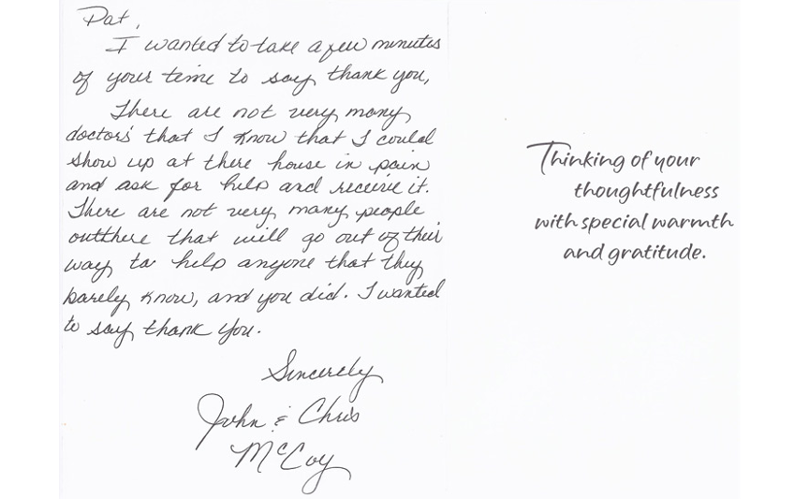 Pat,
I wanted to take a few minutes
of your time to say thank you,
There are not very many
doctors that I know that I could
show up at there house in pain
and ask for help and receive it.
There are not very many people
outthere that will go out of their
way to help anyone that they
barely know, and you did. I wanted
to say thank you.
Sincerely
John & Chris
McCoy
Thinking of your
thoughtfulness
with special warmth
and gratitude.